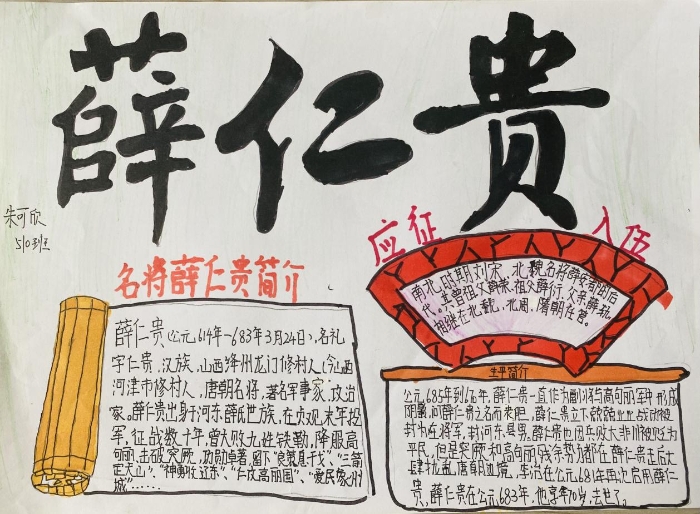 薛仁贵
朱可欣
510班
名将薛仁贵简介
薛仁贵(公元614年-683年3月24日),名礼
字仁贵,汉族,山西绛州龙门修村人(今山西
河津市修村人,唐朝名将,著名军事家,政治
家。薛仁贵出身于河东薛氏世族,在贞观末年投
军,征战数十年,曾大败九姓铁勒,降服高
句丽,击破突厥,功勋卓著,留下"良策息干戈"、"三箭
定天山"、"神勇收辽东"、"仁政高丽国"、"爱民象州
城"......
应征入伍
南北时期刘宋、北魏名将薛安都的后
代。其曾祖父薛荣、祖父薛衍、父亲薛轨,
相继在北魏、北周、隋朝任官。
生平简介
年,薛仁贵一直作为
薛仁贵之名而丧胆,薛仁贵立下
封为左将军,封河东县男。薛仁贵也因兵败大非川被贬为
平民,但是突厥和高句丽残余势力都在薛仁贵走后大
肆扰乱唐朝边境,李治在公元681年再次启用薛仁
贵,薛仁贵在公元683年,他享年70岁,去世了。